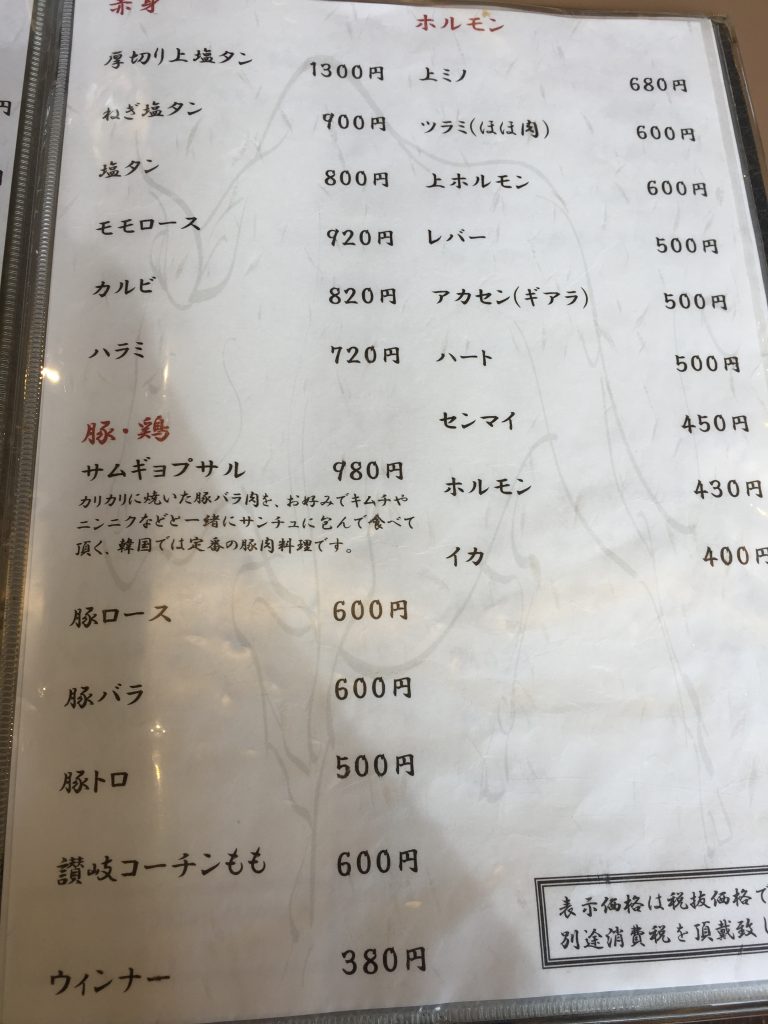 赤身
厚切り上塩タン 1300円
ねぎ塩タン 900円
塩タン 800円
モモロース 920円
カルビ 820円
ハラミ 720円
豚・鶏
サムギョプサル 980円
カリカリに焼いた豚バラ肉を、お好みでキムチや
ニンニクなどと一緒にサンチュに包んで食べて
頂く、韓国では定番の豚肉料理です。
豚ロース 600円
豚バラ 600円
豚トロ 500円
讃岐コーチンもも 600円
ウィンナー 380円
ホルモン
上ミノ 680円
ツラミ(ほほ肉) 600円
上ホルモン 600円
レバー 500円
アカセン(ギアラ) 500円
ハート 500円
センマイ 450円
ホルモン 430円
イカ 400円
表示価格は税抜価格で
別途消費税を頂戴致し
円